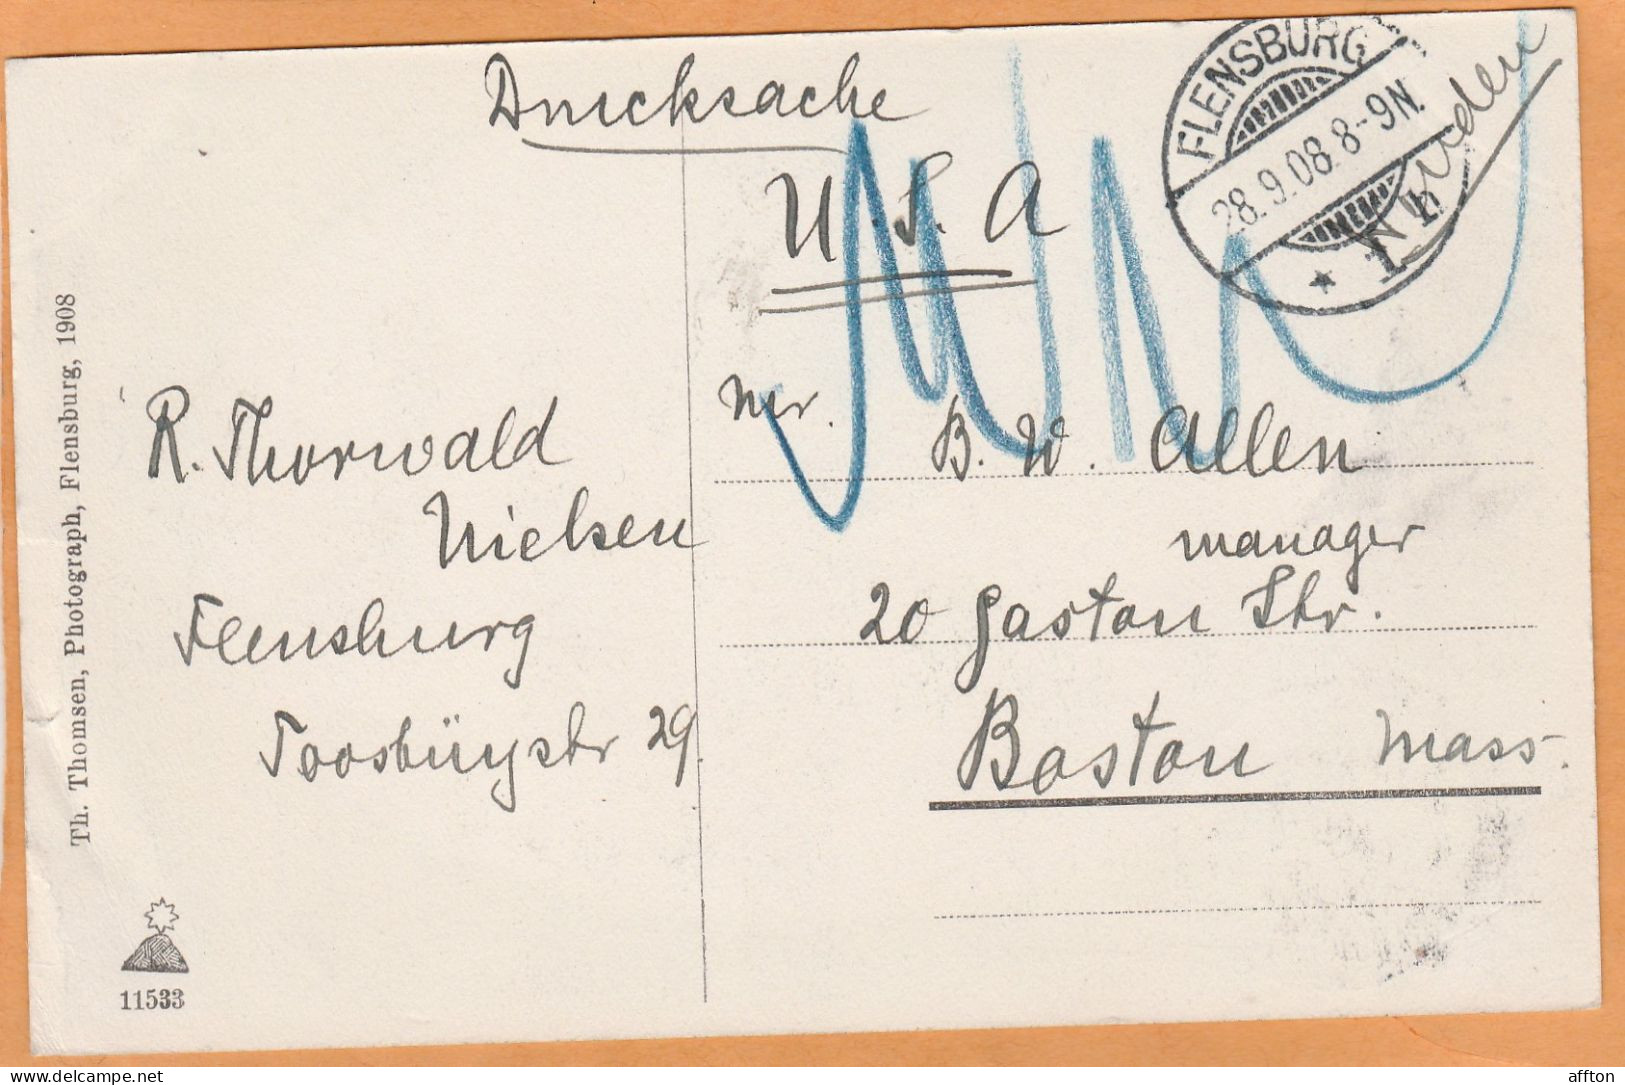 Drucksache
U. S. A
FLENSBURG
28.9.08. 8-9N.
* 1
Mr. B. W. Allen
manager
20 Gaston Str.
Boston Mass.
R. Thorwald
Nielsen
Flensburg
Toosbüystr 29.
Th. Thomsen, Photograph, Flensburg, 1908
11533
delcampe.net
affton